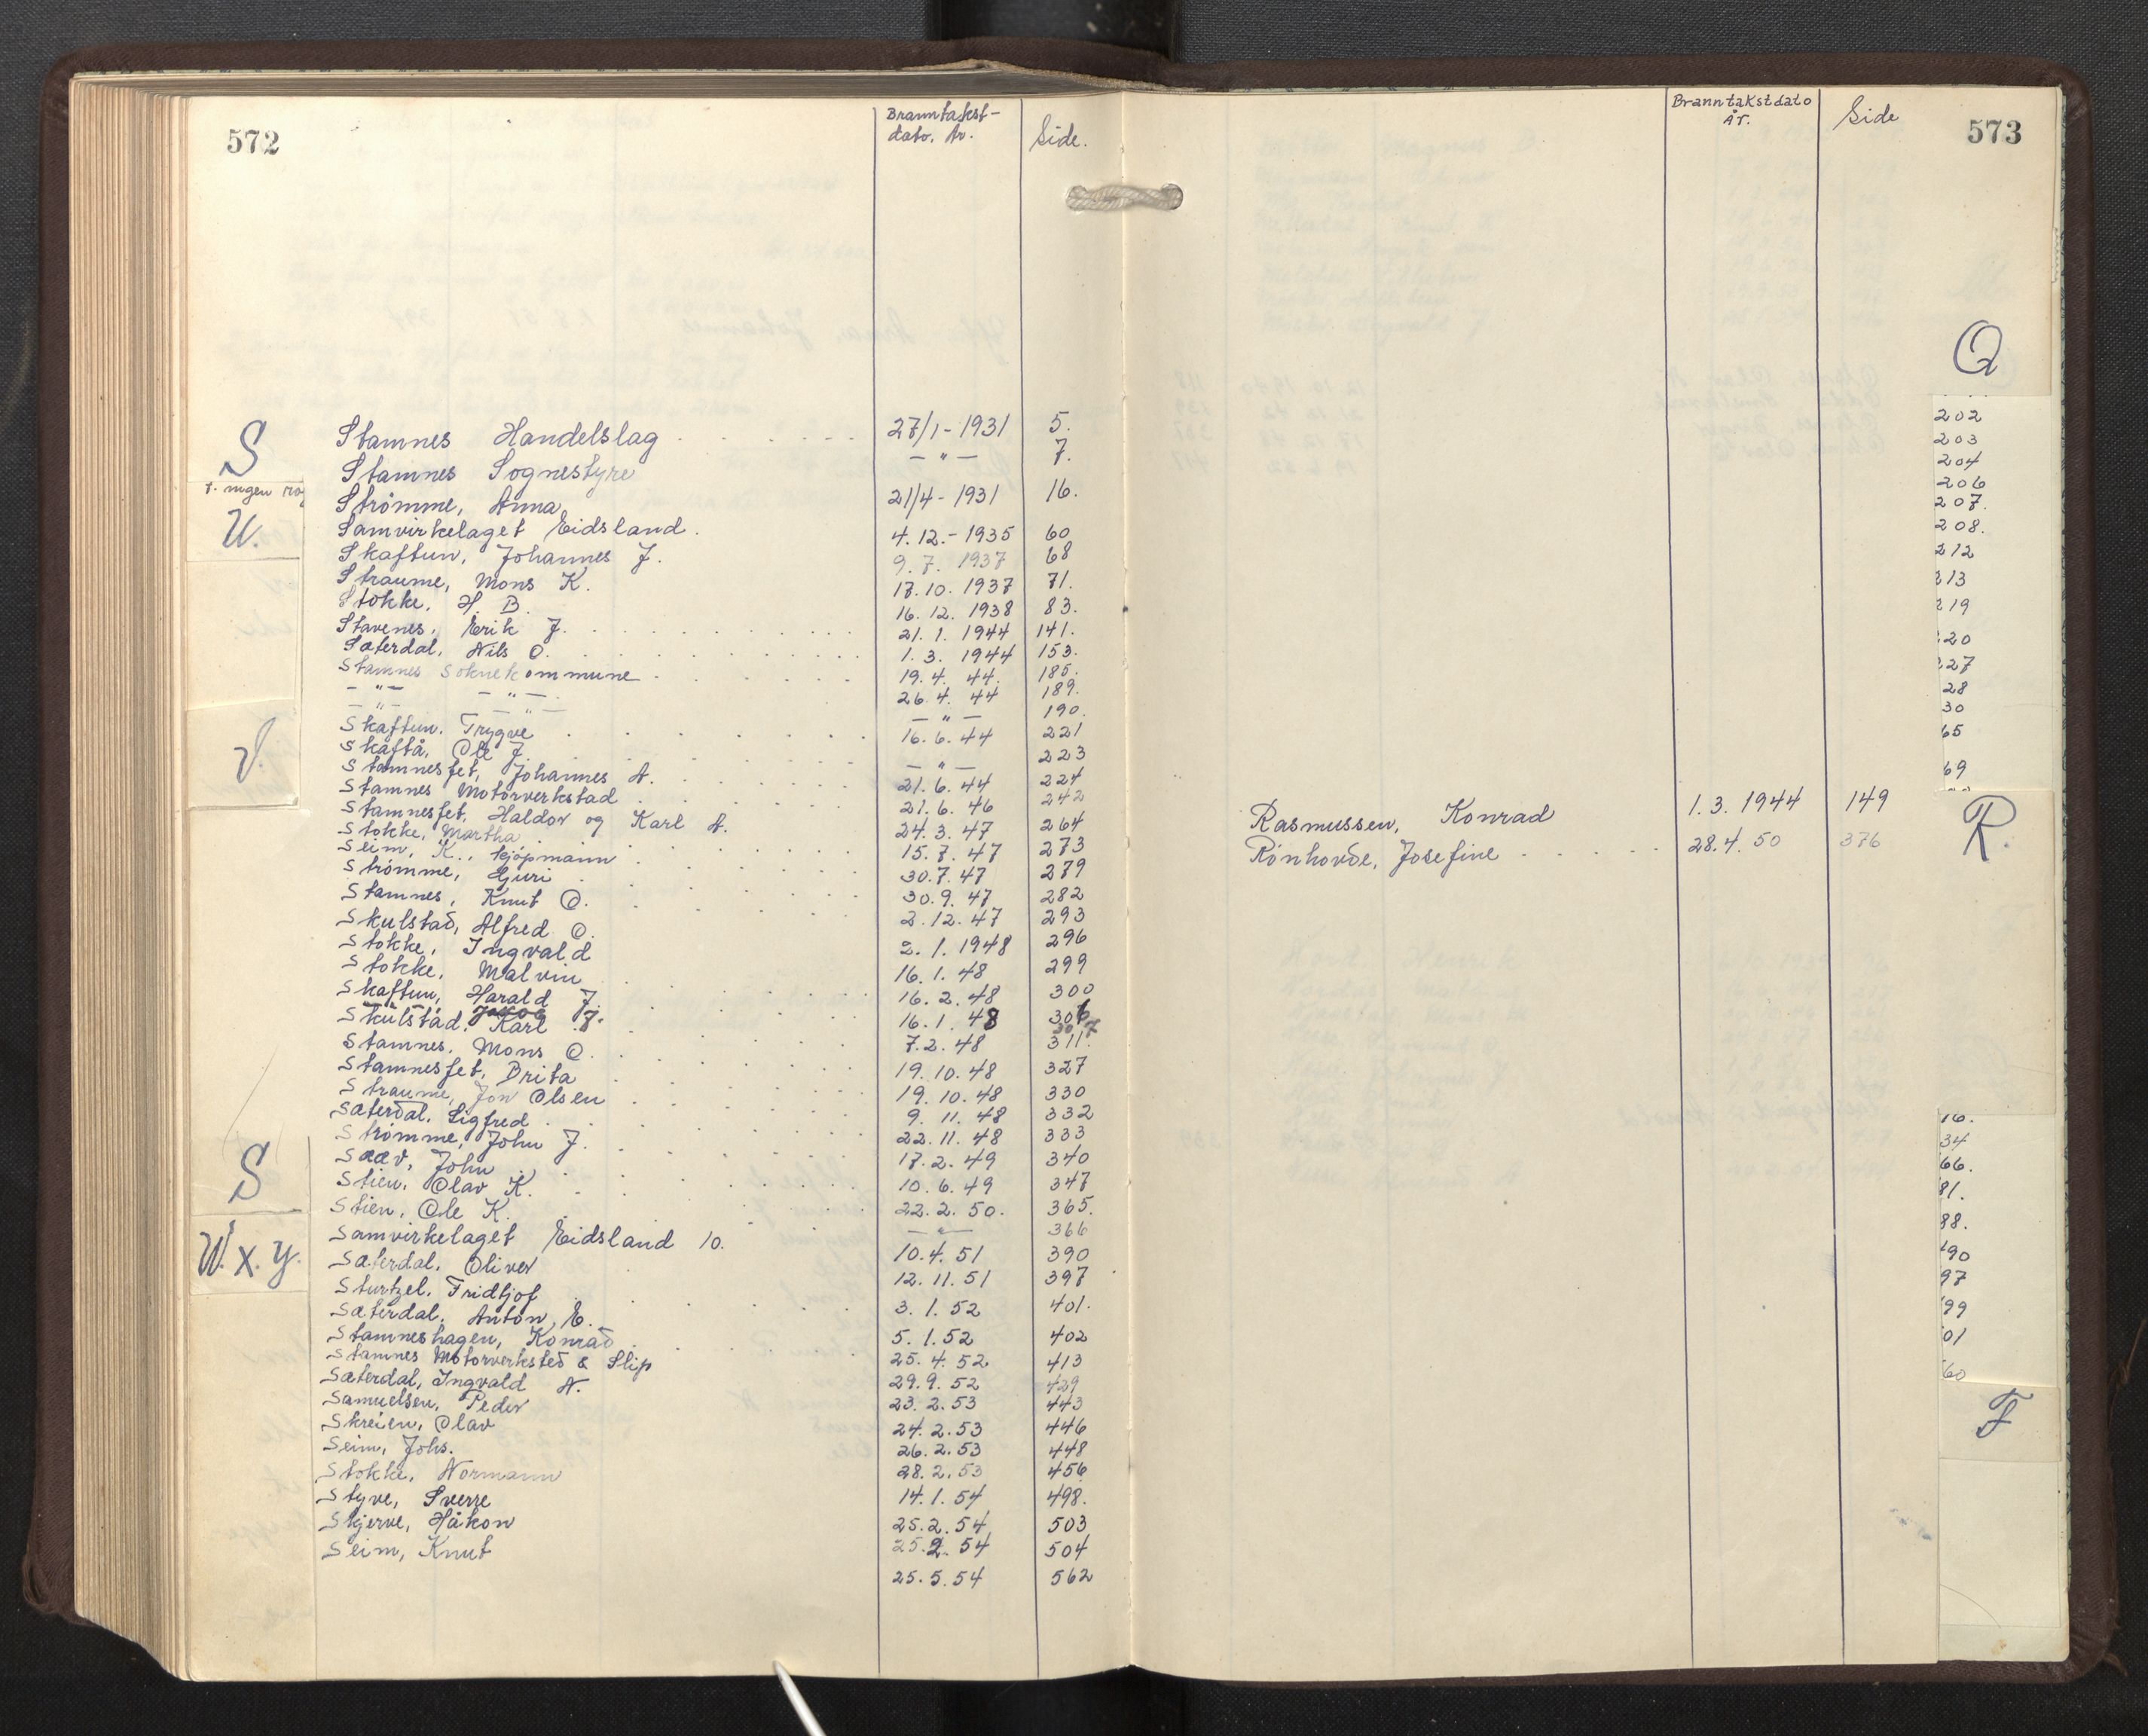 572
Branntakst-
dato. år. Side.
S
t. ingen rog
U.
V.
S
W. X. Y.
Stamnes Handelslag 27/1-1931 5.
Stamnes Sognestyre — " — 7.
Strømme, Anna 21/4-1931 16.
Samvirkelaget Eidsland. 4.12.-1935 60
Skaftun, Johannes J. 9.7. 1937 68
Straume, Mons K. 17.10.1937 71.
Stokke, H. B. 16.12.1938 83.
Stavenes, Erik J. 21.1.1944 141.
Sæterdal, Nils O. 1.3.1944 153.
Stamnes Soknekommune 19.4.44. 185.
— " — — " — 26.4.44 189.
— " — — " — — " — 190.
Skaftun, Trygve 16.6.44 221
Skaftå, Ole J. — " — 223
Stamnesfet, Johannes A. 21.6.44 224
Stamnes Motorverkstad 21.6.46 242
Stamnesfet, Haldor og Karl A. 24.3.47 264
Stokke, Martha 15.7.47 273
Seim, K., kjøpmann 30.7.47 279
Strømme, Guri 30.9.47 282
Stamnes, Knut O. 2.12.47 293
Skulstad, Alfred O. 2.1.1948 296
Stokke, Ingvald 16.1.48 299
Stokke, Malvin 16.2.48 300
Skaftun, Harald J. 16.1.48 306
Skulstad, Jakob Karl J. 7.2.48 307 311.
Stamnes, Mons O. 19.10.48 327
Stamnesfet, Brita 19.10.48 330
Straume, Jon Olsen 9.11.48 332
Sæterdal, Sigfred 22.11.48 333
Strømme, John J. 17.2.49 340
Saav, John 10.6.49 347
Stien, Olav K. 22.2.50. 365.
Stien, Ole K. — " — 366
Samvirkelaget Eidsland 10. 10.4.51 390
Sæterdal, Oliver 12.11.51 397
Sturtzel, Fridtjof 3.1.52 401.
Sæterdal, Anton, E. 5.1.52 402
Stamneshagen, Konrad 25.4.52 413
Stamnes Motorverksted & Slip 29.9.52 429
Sæterdal, Ingvald N. 23.2.53 443
Samuelsen, Peder 24.2.53 446
Skreien, Olav 26.2.53 448
Seim, Johs. 28.2.53 456
Stokke, Normann 14.1.54 498.
Styve, Sverre 25.2.54 503
Skjerve, Håkon 25.2.54 504
Seim, Knut 25.5.54 562
Branntakstdato
år. Side
573
Q
202
203
204
206
207.
208.
212
213
219
20
27
28
30
65
69
Rasmussen, Konrad 1.3.1944 149
Rønhovde, Josefine 28.4.50 376
R.
16.
34
66.
81.
88.
90
97
99
01
60
F